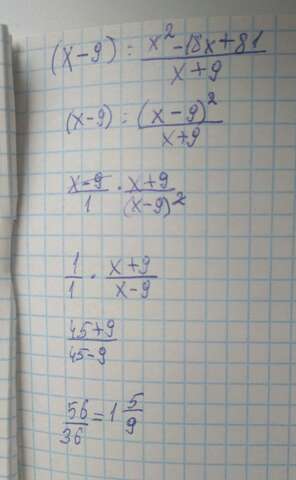 (x-9) : x²-18x+81 / x+9
(x-9) : (x-9)² / x+9
x-9 / 1 · x+9 / (x-9)²
1 / 1 · x+9 / x-9
45+9 / 45-9
56 / 36 = 1 5 / 9